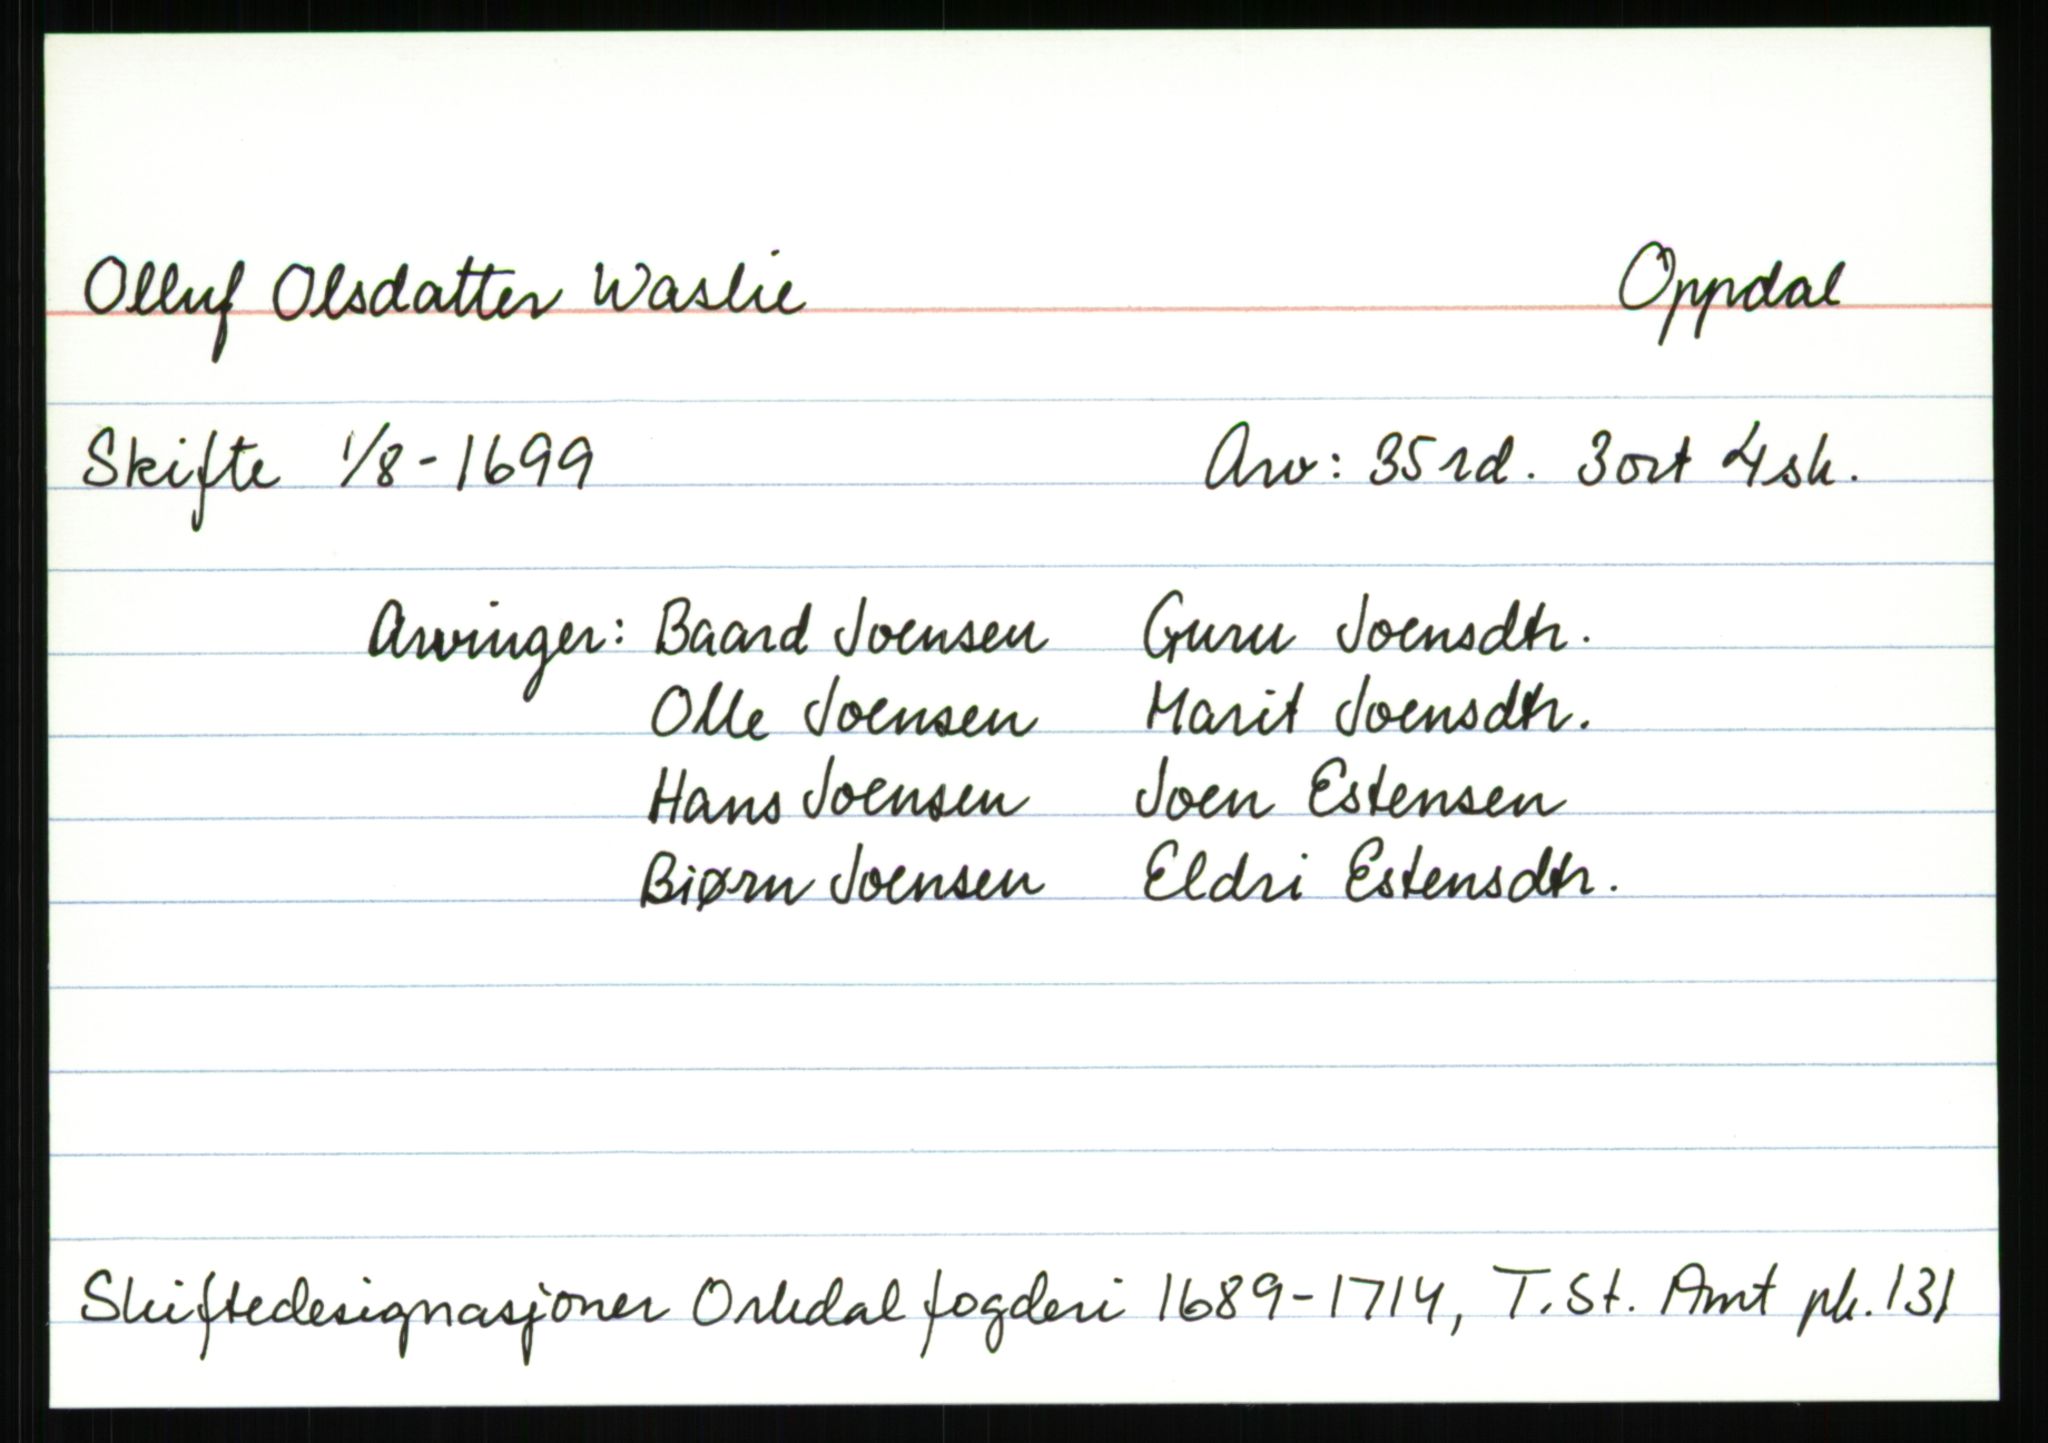 Olluf Olsdatter Waslie Oppdal
Skifte 1/8-1699 Arv: 35 rd. 3 ort 4 sk.
Arvinger: Baard Joensen Guru Joensdtr.
Olle Joensen Marit Joensdtr.
Hans Joensen Joen Estensen
Biørn Joensen Eldri Estensdtr.
Skiftedesignasjoner Orkdal fogderi 1689-1714, T. St. Amt pk. 131